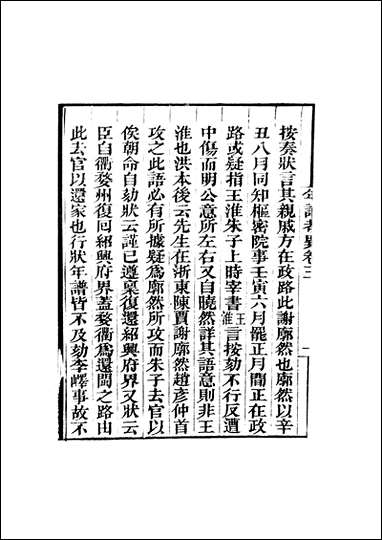 年譜考異卷三
一
按奏狀言其親戚方在政路此謝廓然也廓然以辛
丑八月同知樞密院事壬寅六月罷正月閒正在政
路或疑指王淮朱子上時宰書王淮言按劾不行反遭
中傷而明公意所左右又自曉然詳其語意則非王
淮也洪本後云先生在浙東陳賈謝廓然趙彥仲首
攻之此語必有所據疑爲廓然所攻而朱子去官以
俟朝命自劾狀云謹已遵稟復還紹興府界又狀云
臣自衢婺州復回紹興府界蓋婺衢爲還閩之路由
此去官以還家也行狀年譜皆不及劾李嶧事故不